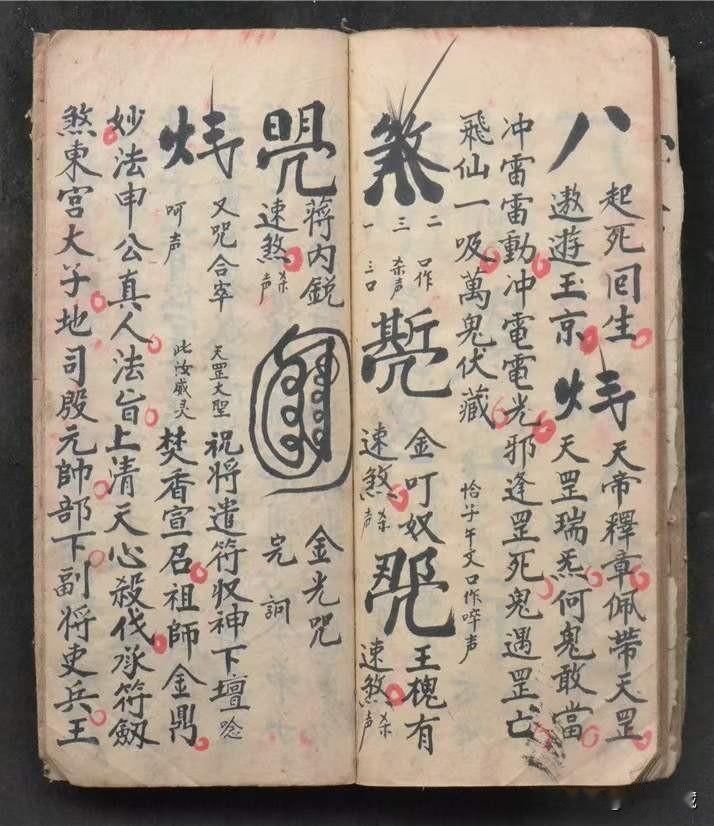 八
起死囘生
遨遊玉京
天帝釋章佩帶天罡
天罡瑞炁何鬼敢當
冲雷雷動冲電電光邪逢罡死鬼遇罡亡
飛仙一吸萬鬼伏藏
恰子午文口作啐声
煞
二
三
一
口作
杀声
三口
金叮奴
速煞
杀声
王槐有
速煞
杀声
蒋内鋭
速煞
杀声
金光咒
完詞
又咒合宰
呵声
天罡大聖
此汝威灵
祝将遣符収神下壇唸
焚香宣召祖師金鼎
妙法申公真人法旨上清天心殺伐承符劔
煞東宮大子地司殷元帥部下副将吏兵王